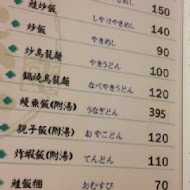 鮭炒飯 しゃけやきめし 150
炒飯 やきめし 140
炒烏龍麵 やきうどん 90
鍋燒烏龍麵 なべやきうどん 100
鰻魚飯(附湯) うなぎどん 395
親子飯(附湯) おやこどん 120
炸蝦飯(附湯) てんどん 110
鮭飯糰 おむすび 70